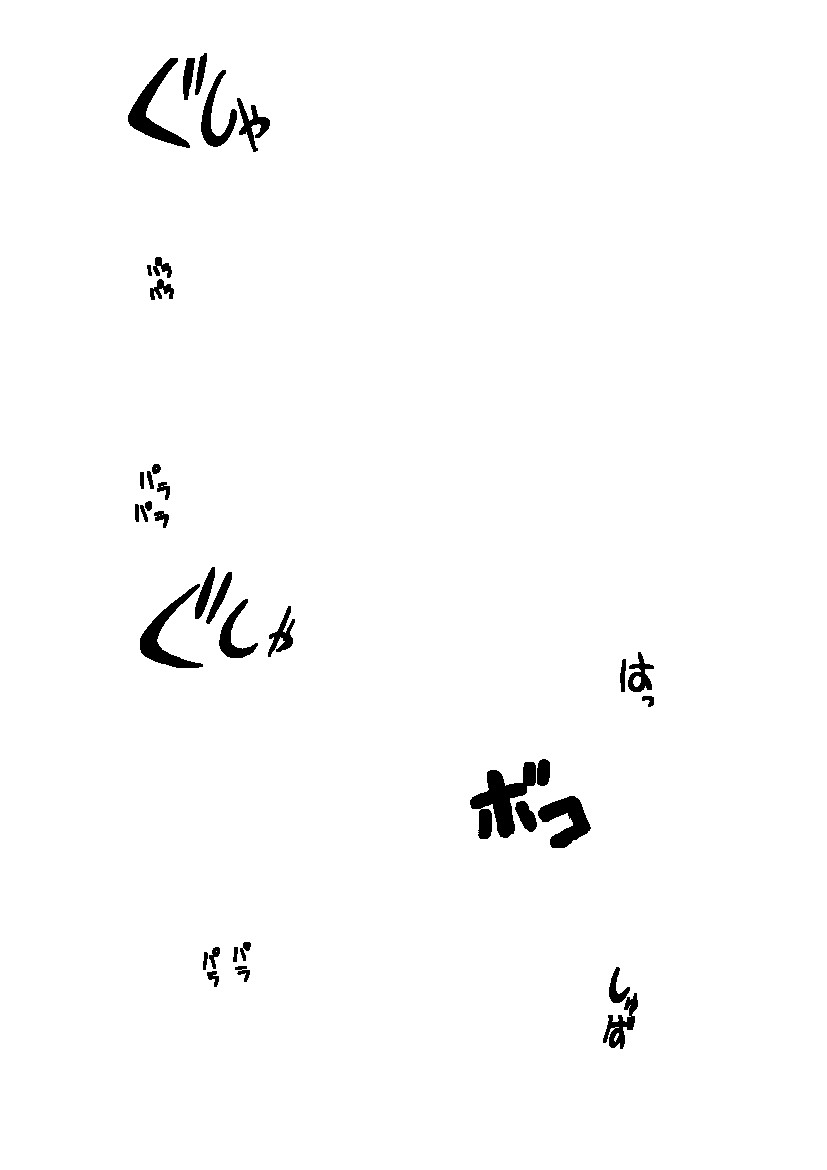 ぐしゃ
パラ
パラ
パラ
パラ
ぐしゃ
はっ
ボコ
パラ
パラ
しゅ
ば